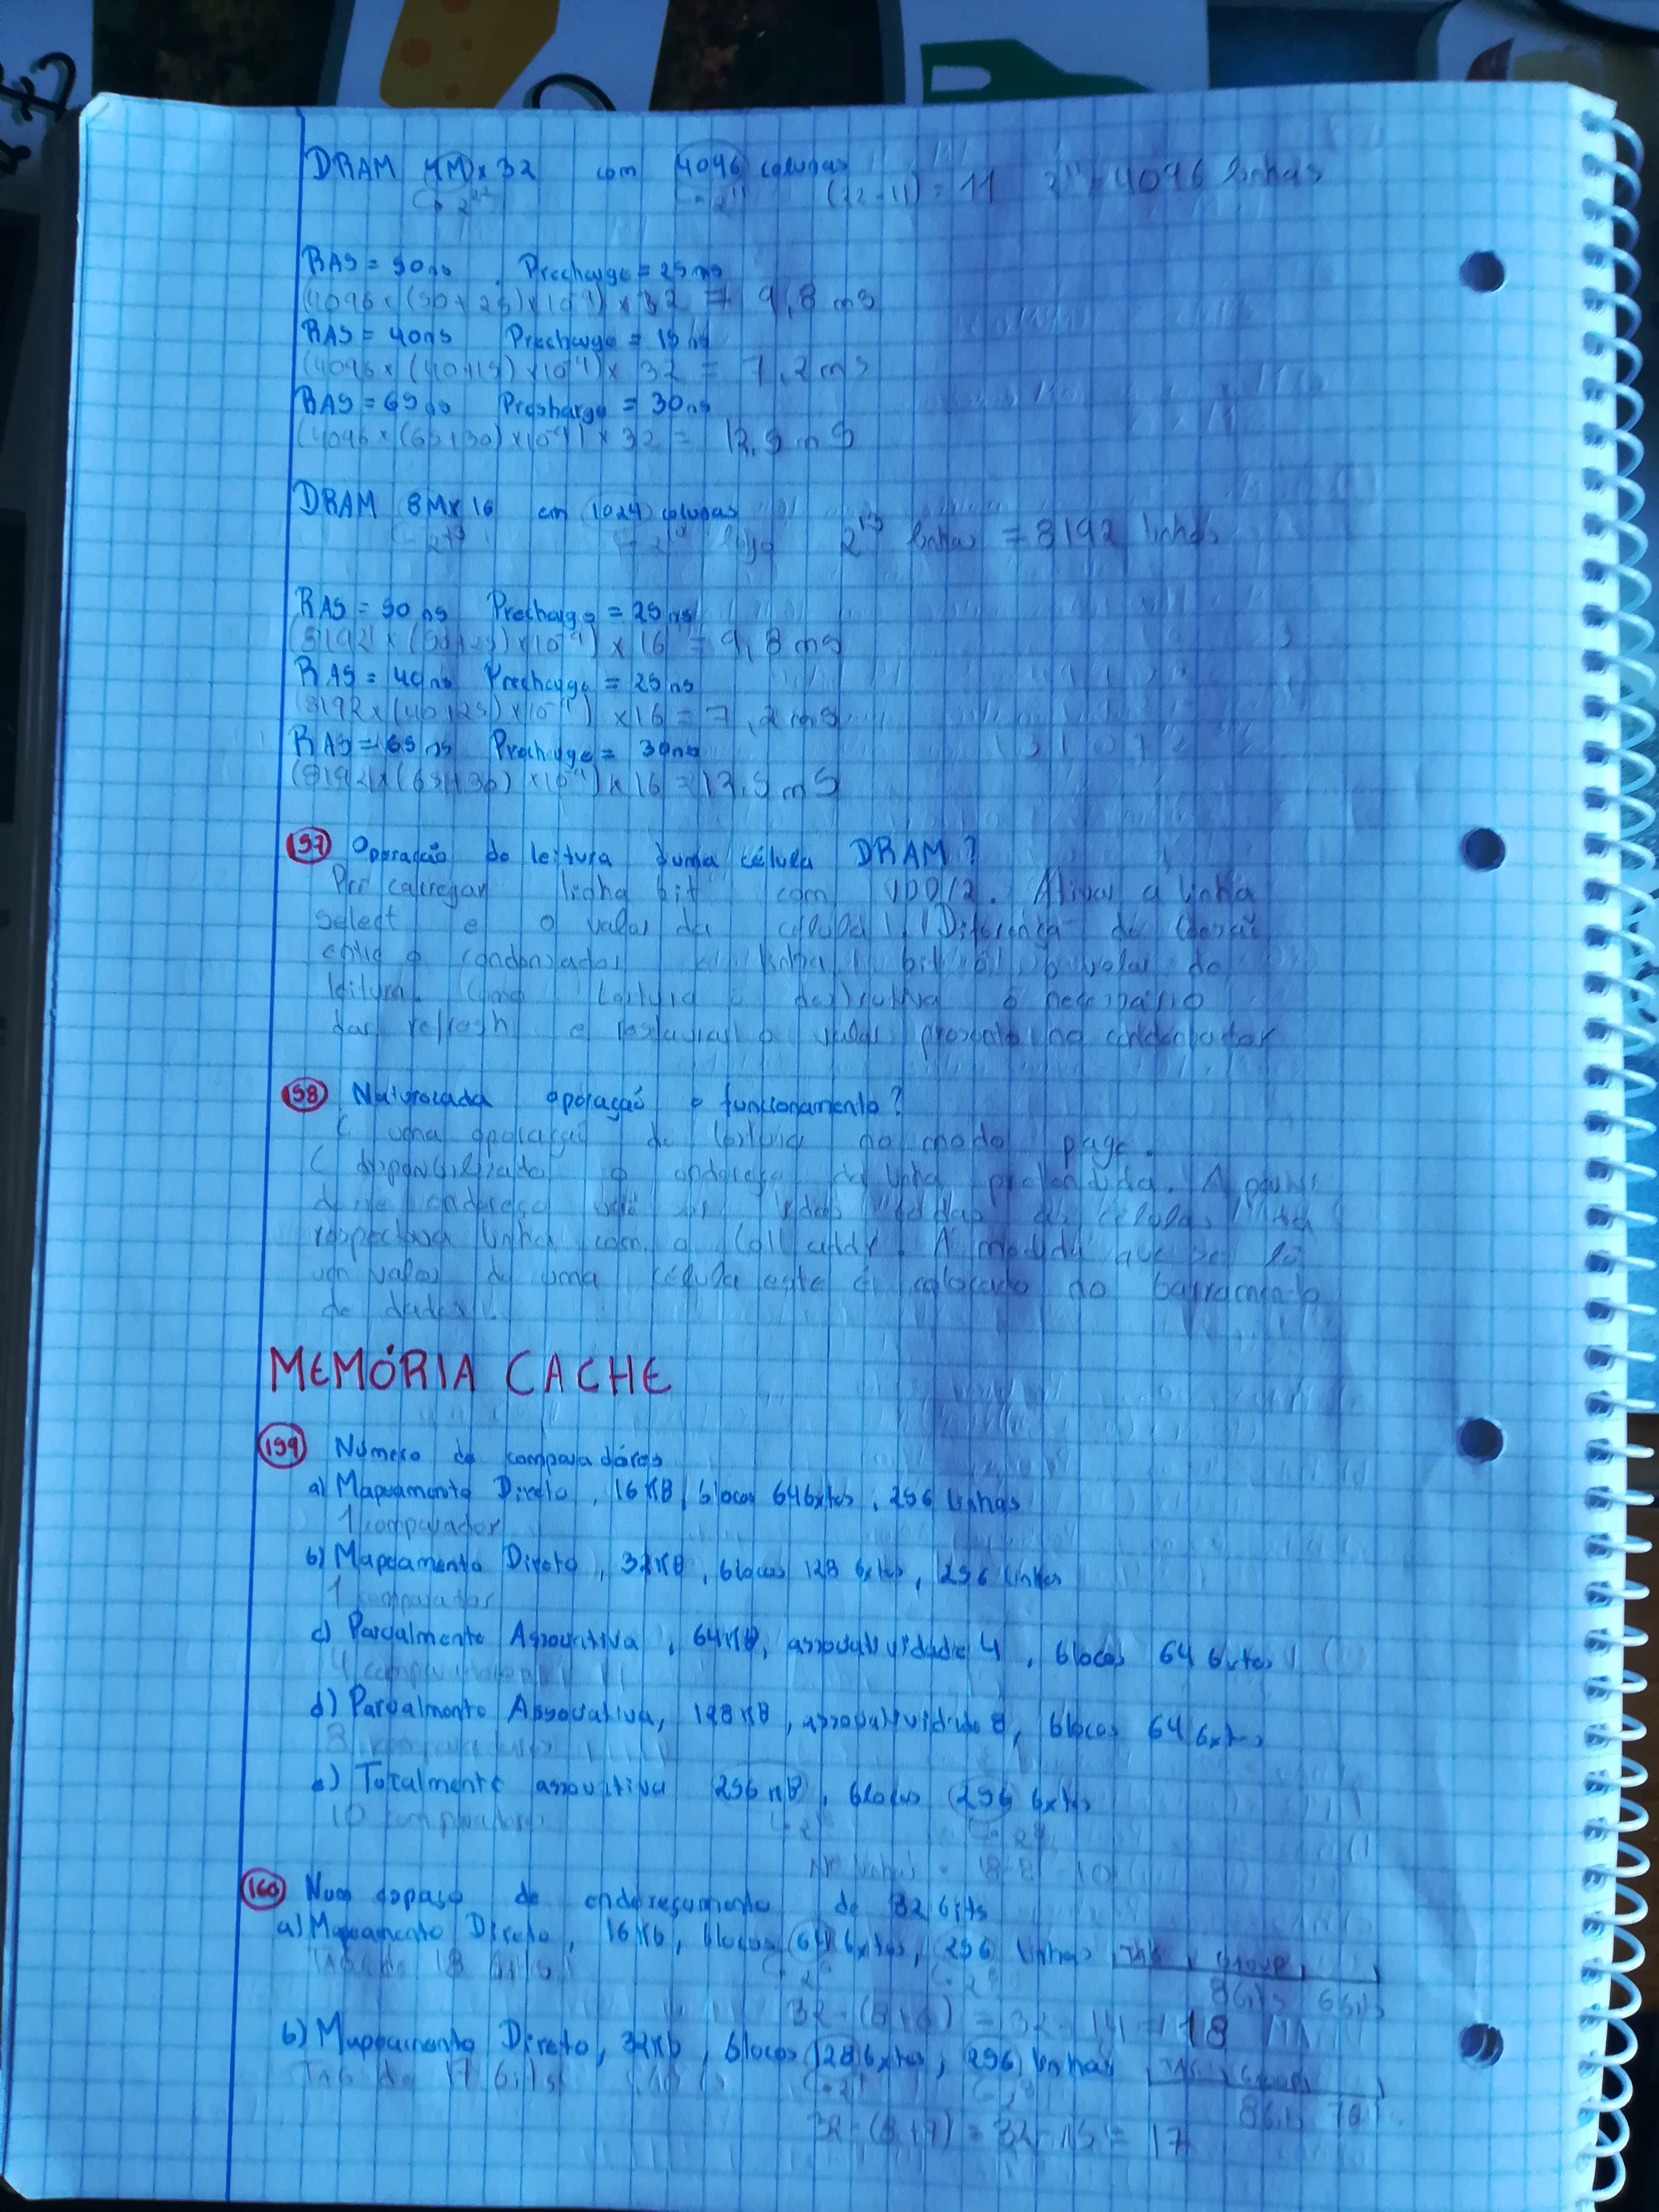 DRAM 4M x 32 com 4096 colunas (22-11) = 11 2^11 = 4096 linhas
2^22 2^11
RAS = 50ns Precharge = 25ns
(4096 x (50+25) x 10^-9) x 32 = 9,8 ms
RAS = 40ns Precharge = 15ns
(4096 x (40+15) x 10^-9) x 32 = 7,2 ms
RAS = 65ns Precharge = 30ns
(4096 x (65+30) x 10^-9) x 32 = 12,5 ms
DRAM 8M x 16 com 1024 colunas 2^13 linhas = 8192 linhas
RAS = 50ns Precharge = 25ns
(8192 x (50+25) x 10^-9) x 16 = 9,8 ms
RAS = 40ns Precharge = 25ns
(8192 x (40+25) x 10^-9) x 16 = 7,2 ms
RAS = 65ns Precharge = 30ns
(8192 x (65+30) x 10^-9) x 16 = 12,5 ms
157 Operação de leitura duma célula DRAM?
Pré carregar linha bit com VDD/2. Ativar a linha
select e o valor da célula. Diferença de tensão
entre o condensador e linha bit é o valor de
leitura. Como leitura é destrutiva é necessário
dar refresh e restaurar o valor presente no condensador
158 Natureza da operação e funcionamento?
É uma operação de leitura no modo page.
É disponibilizado o endereço da linha pretendida. A partir
deste endereço as células da
respectiva linha com o Col addr. À medida que se lê
um valor de uma célula este é colocado no barramento
de dados.
MEMÓRIA CACHE
159 Número de comparadores
a) Mapeamento Direto, 16KB, blocos 64 bytes, 256 linhas
1 comparador
b) Mapeamento Direto, 32KB, blocos 128 bytes, 256 linhas
1 comparador
c) Parcialmente Associativa, 64KB, associatividade 4, blocos 64 bytes
4 comparadores
d) Parcialmente Associativa, 128KB, associatividade 8, blocos 64 bytes
8 comparadores
e) Totalmente associativa 256KB, blocos 256 bytes
10 comparadores
Nr linhas = 18-8 = 10
160 Num espaço de endereçamento de 32 bits
a) Mapeamento Direto, 16Kb, blocos 64 bytes, 256 linhas TAG Group
TAG de 18 bits 8 bits 6 bits
32-(8+6) = 32-14 = 18
b) Mapeamento Direto, 32Kb, blocos 128 bytes, 256 linhas TAG Group
TAG de 17 bits
32-(8+7) = 32-15 = 17